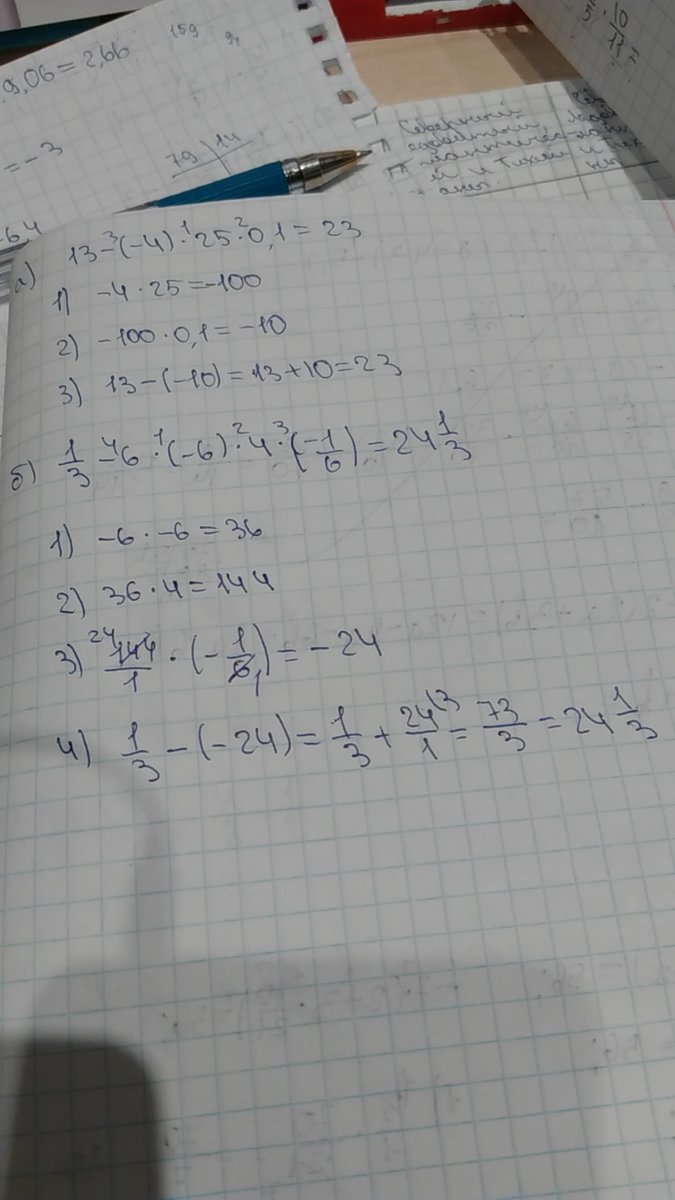 9,06=2,66
159
94
=-3
79 14
-64
10
11
=
5
Северный
а) 13-³(-4)·¹25·²0,1=23
1) -4·25=-100
2) -100·0,1=-10
3) 13-(-10)=13+10=23
б) 1/3 -⁴6·¹(-6)·²4·³(-1/6)=24 1/3
1) -6·-6=36
2) 36·4=144
3) ²⁴144/1·(-1/6₁)=-24
4) 1/3-(-24)=1/3+24⁽³/1=73/3=24 1/3